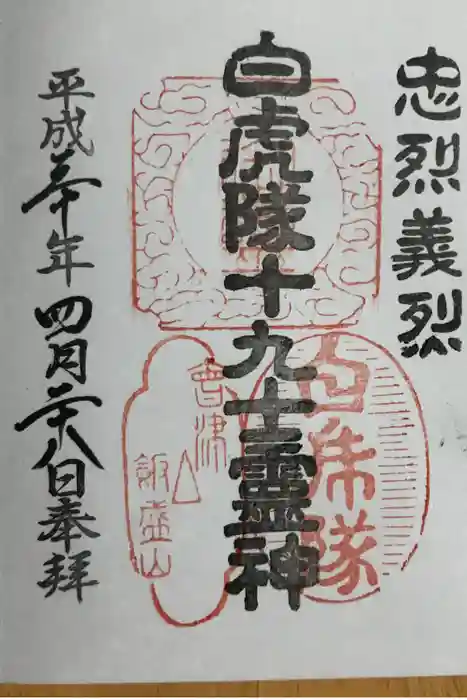 忠烈義烈
白虎隊十九士霊神
白虎隊
會津
飯盛山
平成三十年四月二十八日奉拝